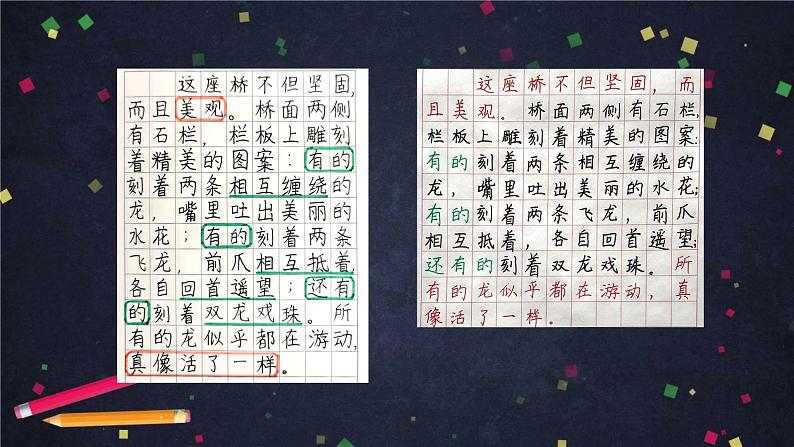 这座桥不但坚固,
而且美观。桥面两侧
有石栏,栏板上雕刻
着精美的图案:有的
刻着两条相互缠绕的
龙,嘴里吐出美丽的
水花;有的刻着两条
飞龙,前爪相互抵着,
各自回首遥望;还有
的刻着双龙戏珠。所
有的龙似乎都在游动,
真像活了一样。
这座桥不但坚固,而
且美观。桥面两侧有石栏,
栏板上雕刻着精美的图案:
有的刻着两条相互缠绕的
龙,嘴里吐出美丽的水花;
有的刻着两条飞龙,前爪
相互抵着,各自回首遥望;
还有的刻着双龙戏珠。所
有的龙似乎都在游动,真
像活了一样。